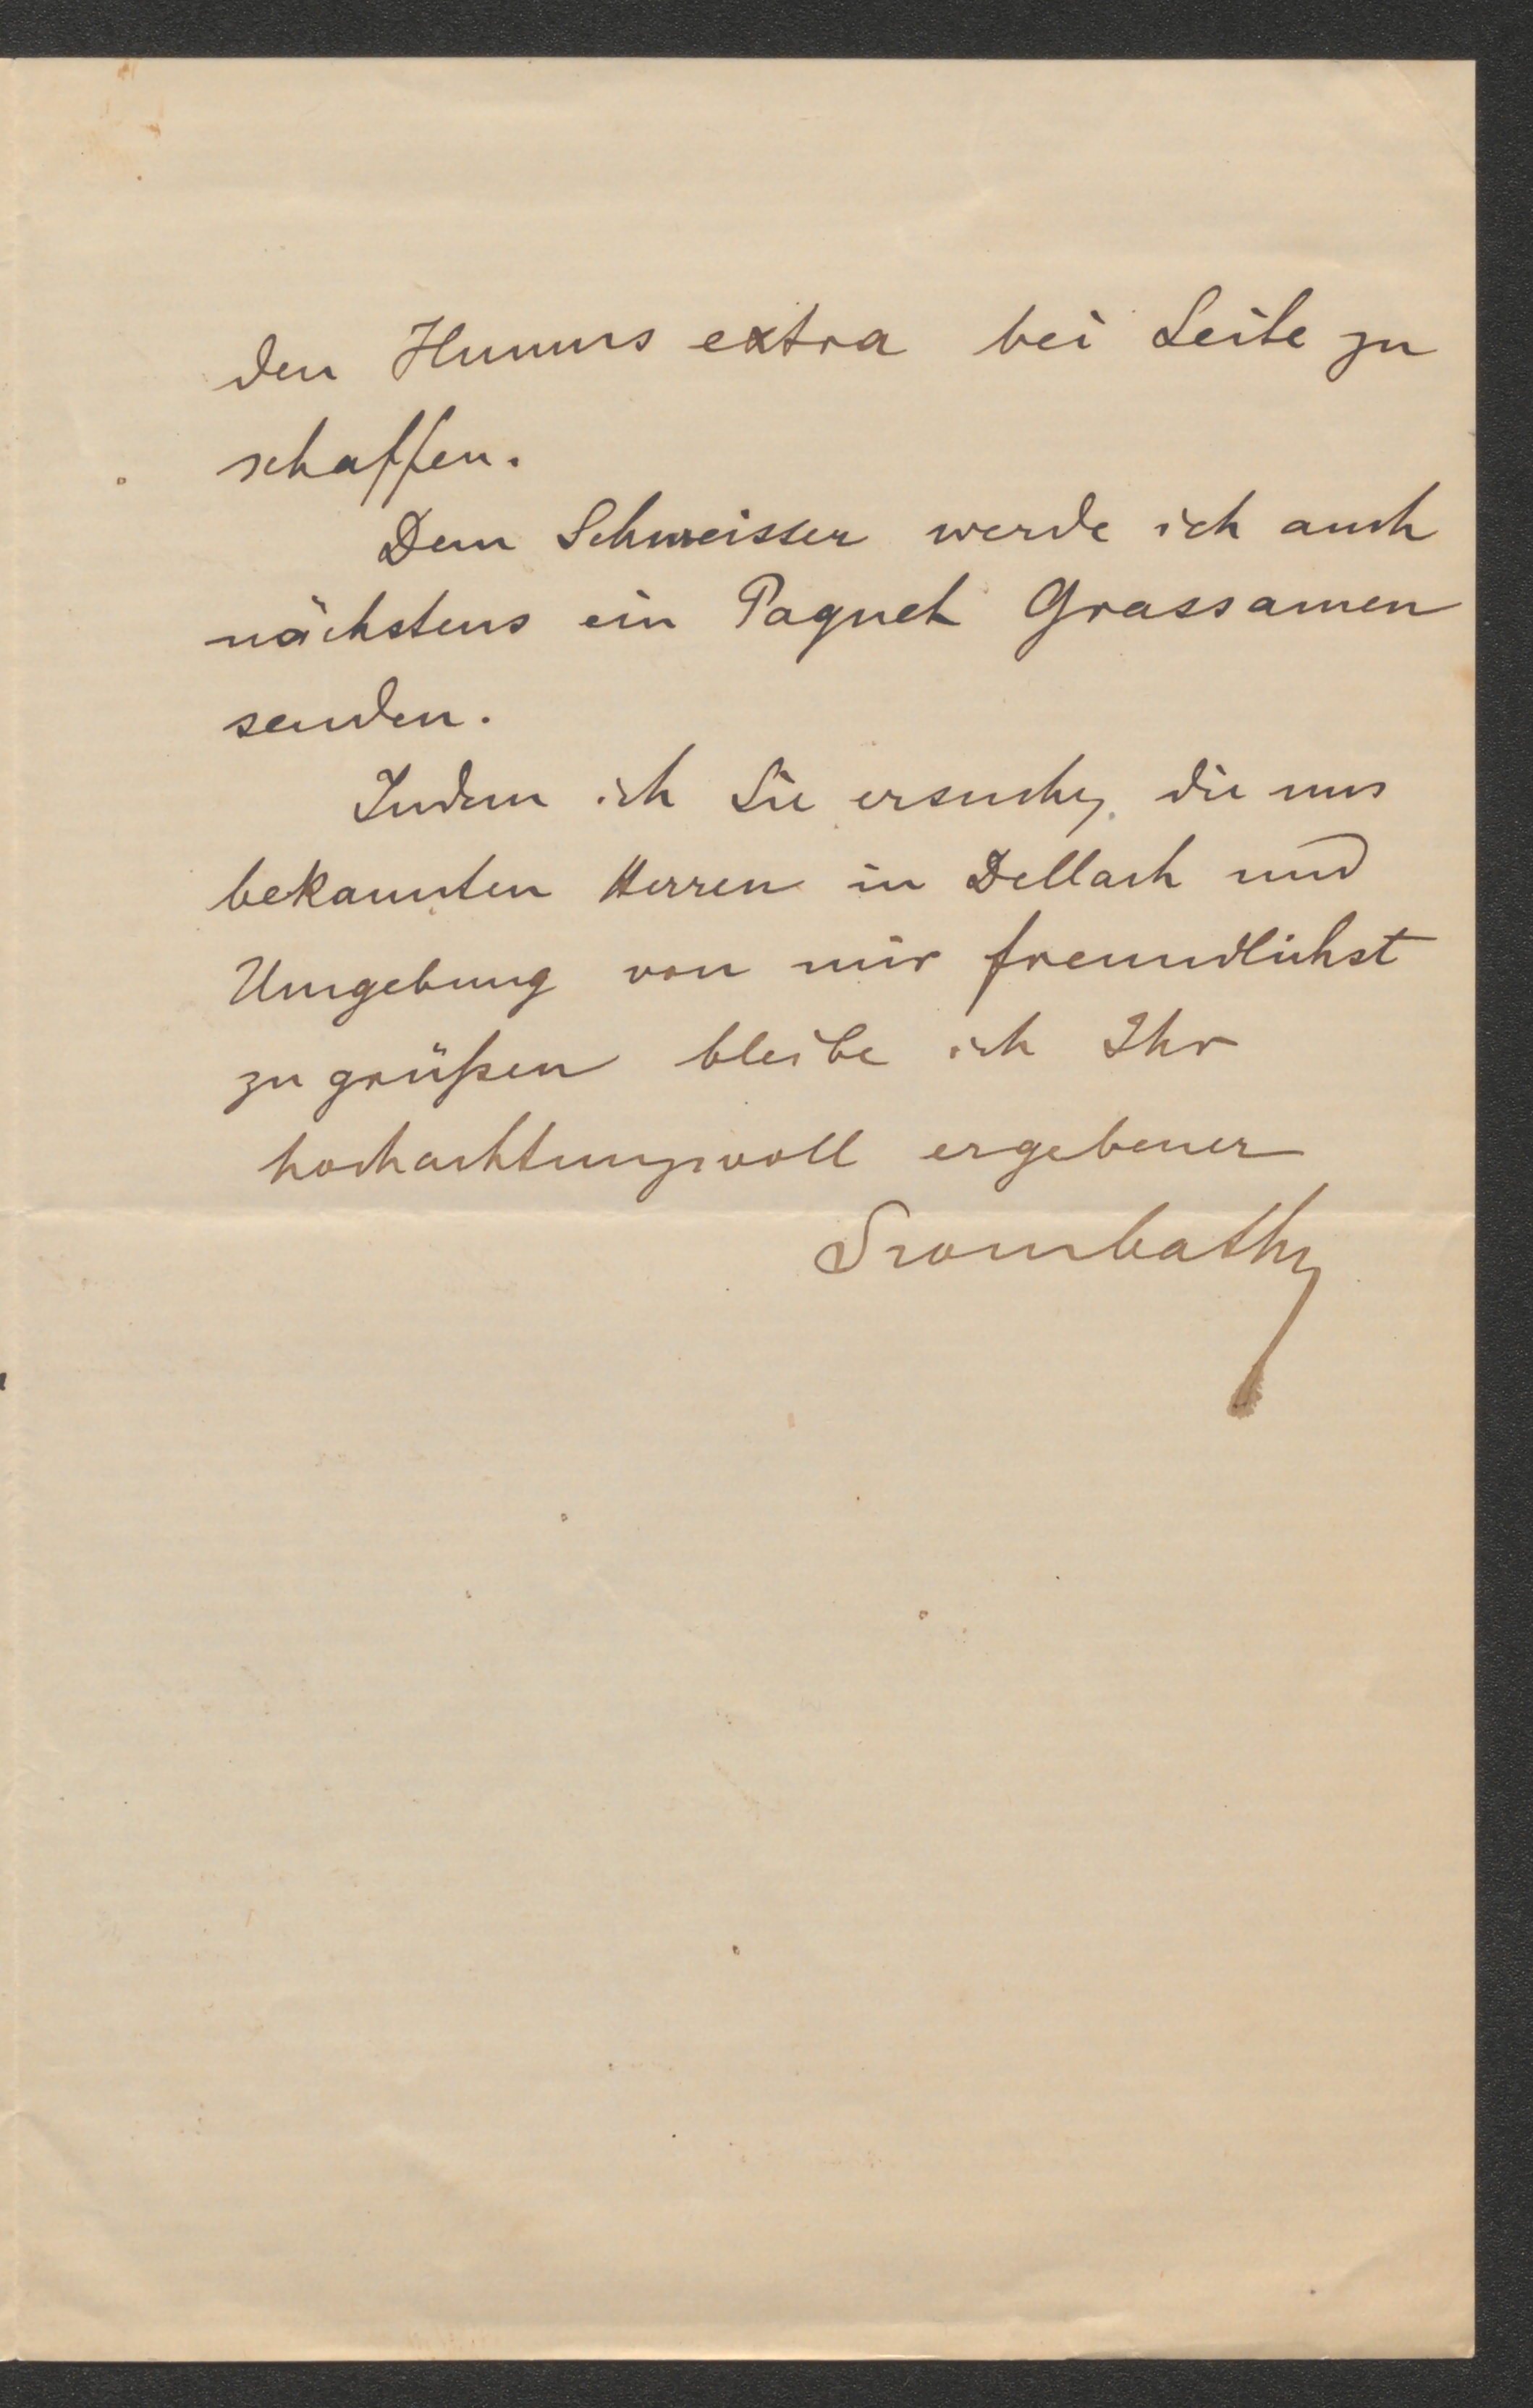 den Humus extra bei Seite zu
schaffen.
Dem Schweisser werde ich auch
nächstens ein Paquet Grassamen
senden.
Indem ich Sie ersuche, die uns
bekannten Herren in Dellach und
Umgebung von mir freundlichst
zu grüßen bleibe ich Ihr
hochachtungsvoll ergebener
Szombathy